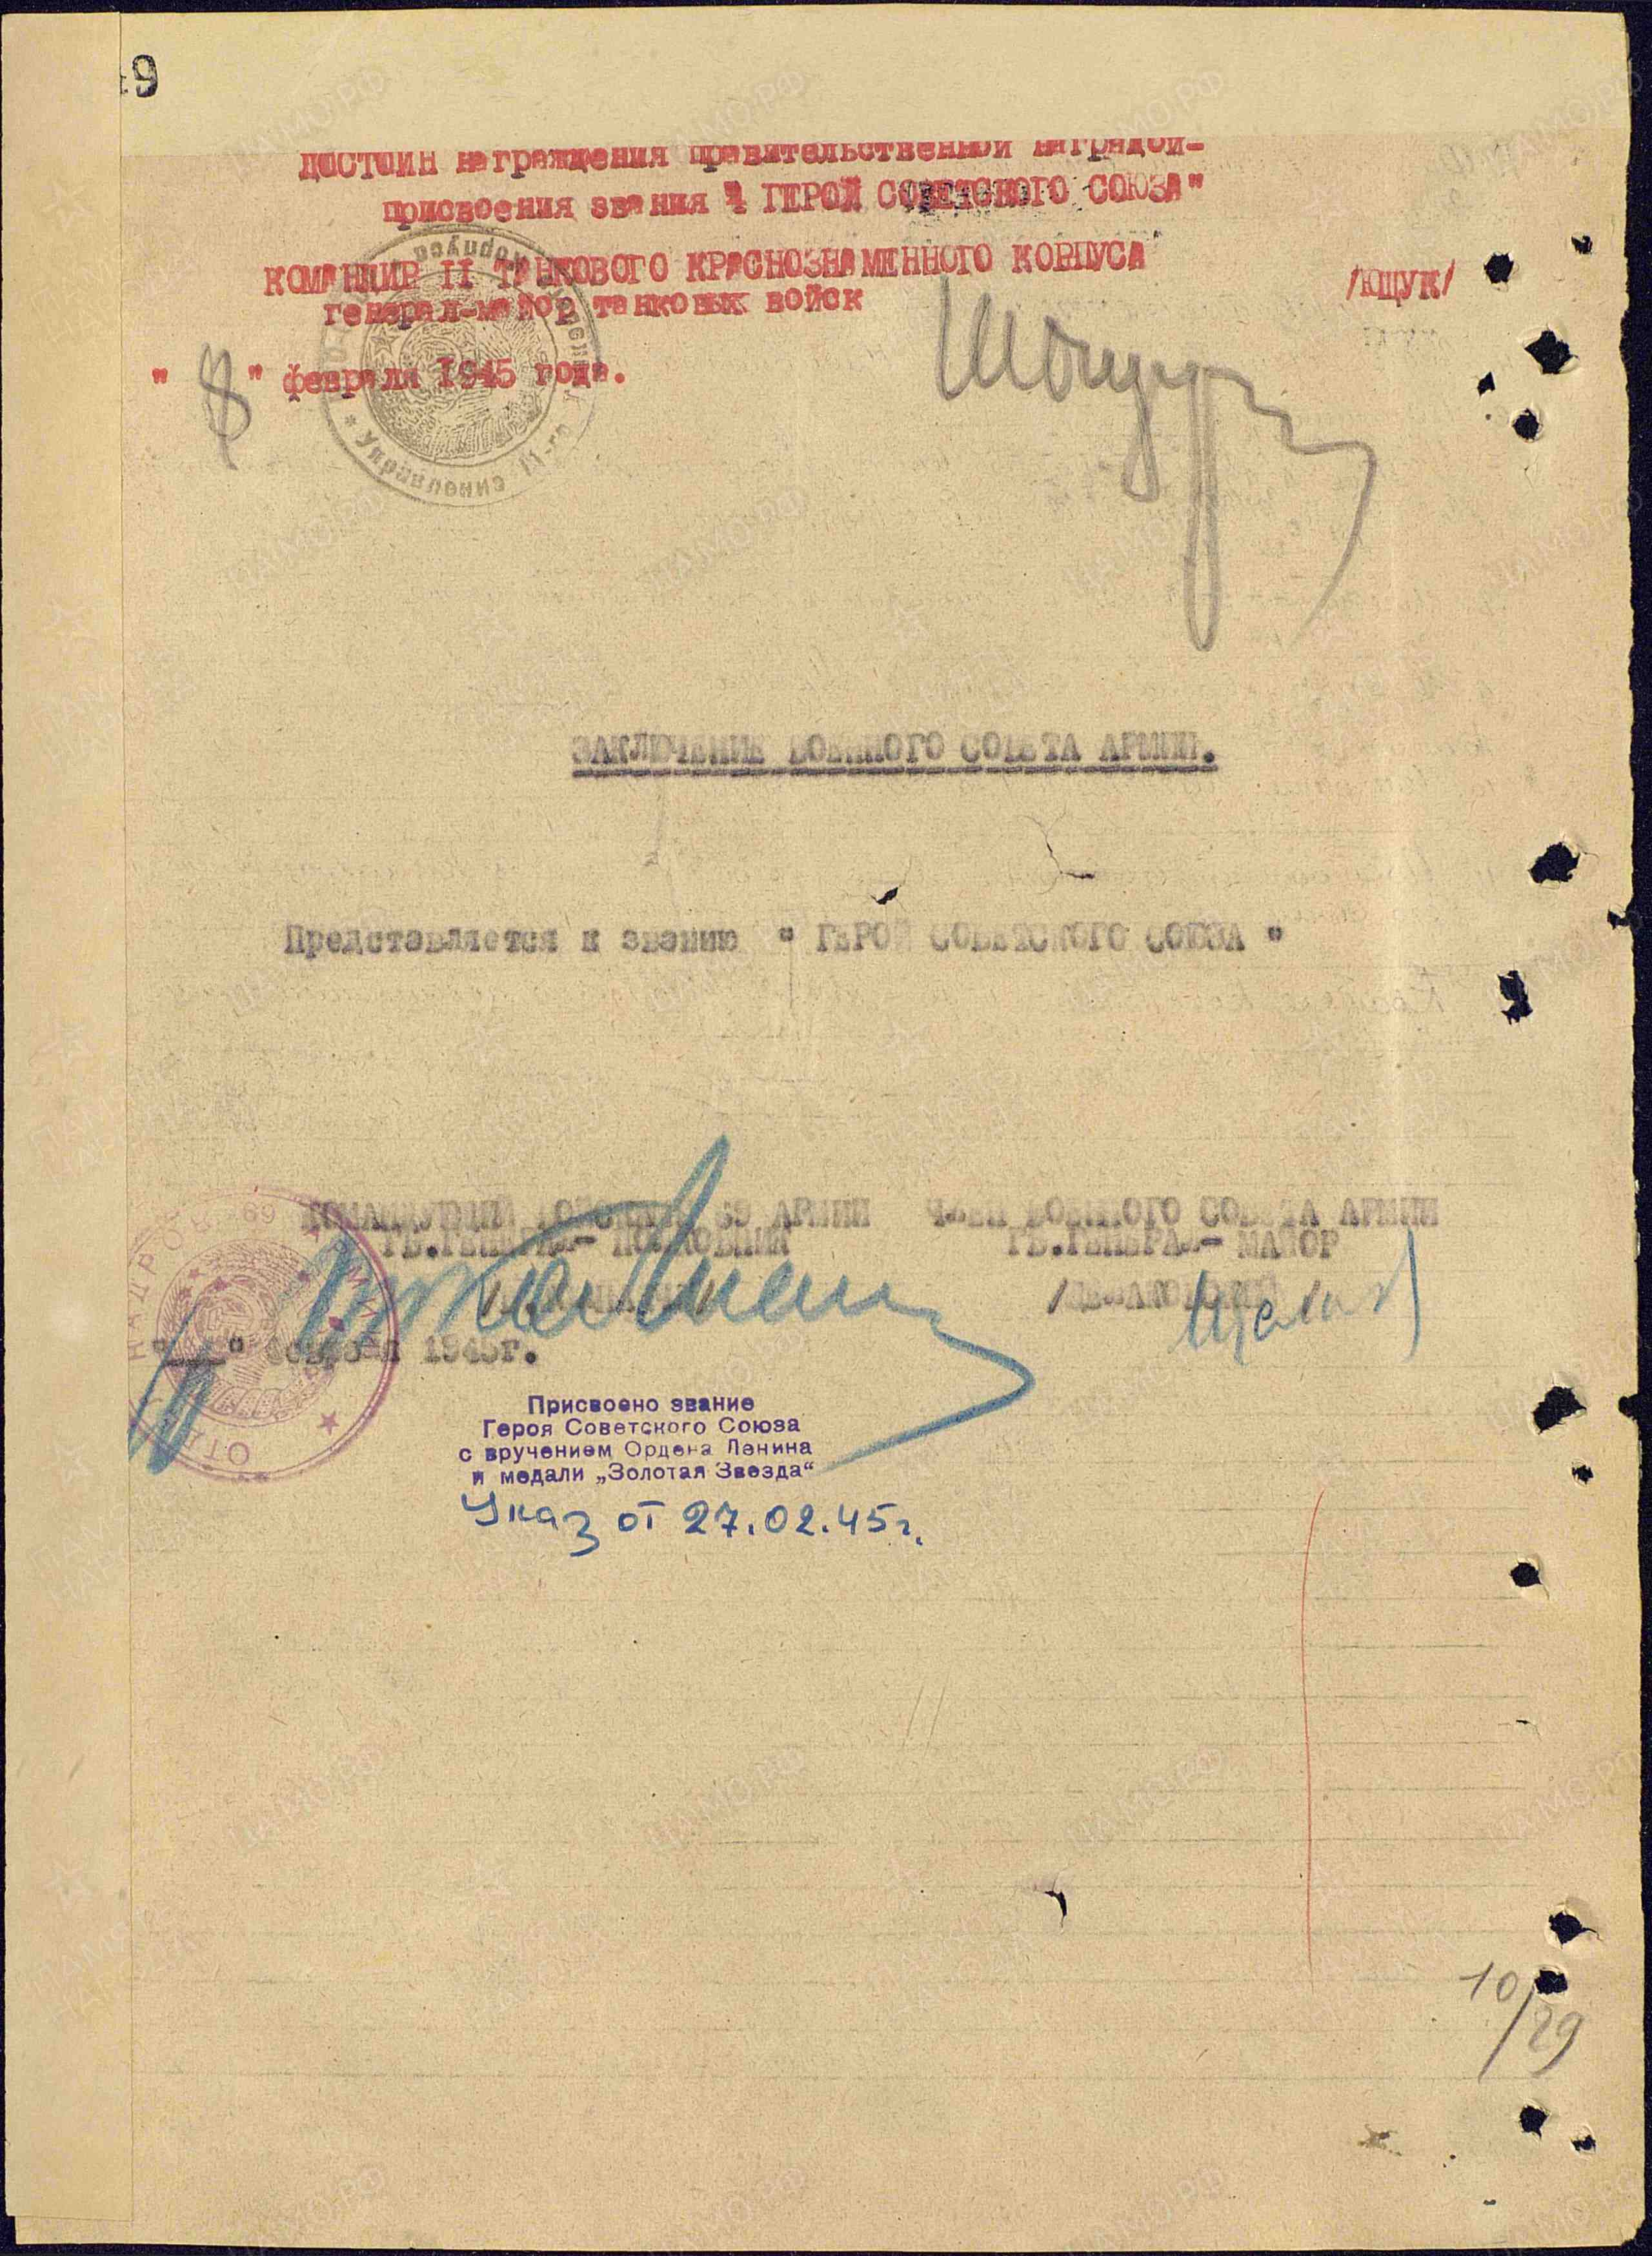 9
ДОСТОИН награждения правительственной наградой-
присвоения звания " ГЕРОЙ СОВЕТСКОГО СОЮЗА"
КОМАНДИР II ТАНКОВОГО КРАСНОЗНАМЕННОГО КОРПУСА
генерал-майор танковых войск
/ЮЩУК/
" 8 " февраля 1945 года.
Управление 11-го корпуса
ЗАКЛЮЧЕНИЕ ВОЕННОГО СОВЕТА АРМИИ.
Представляется к званию " ГЕРОЙ СОВЕТСКОГО СОЮЗА "
КОМАНДУЮЩИЙ ВОЙСКАМИ 69 АРМИИ
ГВ.ГЕНЕРАЛ- ПОЛКОВНИК
ЧЛЕН ВОЕННОГО СОВЕТА АРМИИ
ГВ.ГЕНЕРАЛ- МАЙОР
" " февраля 1945г.
Присвоено звание
Героя Советского Союза
с вручением Ордена Ленина
и медали „Золотая Звезда“
Указ от 27.02.45г.
10/29
ЦАМО.РФ